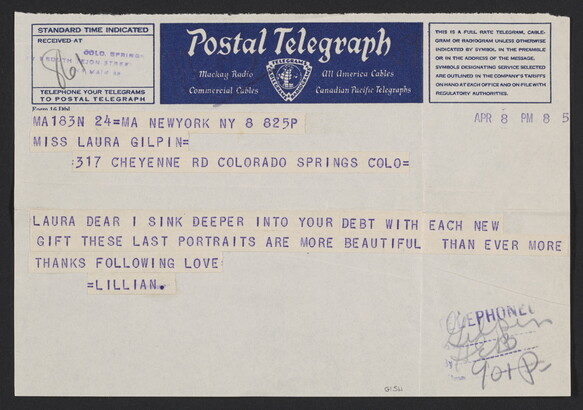 STANDARD TIME INDICATED
RECEIVED AT
COLO. SPRINGS
TELEPHONE YOUR TELEGRAMS
TO POSTAL TELEGRAPH
Postal Telegraph
Mackay Radio
Commercial Cables
All America Cables
Canadian Pacific Telegraphs
THIS IS A FULL RATE TELEGRAM, CABLE-
GRAM OR RADIOGRAM UNLESS OTHERWISE
INDICATED BY SYMBOL IN THE PREAMBLE
OR IN THE ADDRESS OF THE MESSAGE.
SYMBOLS DESIGNATING SERVICE SELECTED
ARE OUTLINED IN THE COMPANY'S TARIFFS
ON HAND AT EACH OFFICE AND ON FILE WITH
REGULATORY AUTHORITIES.
Form 16
MA183N 24=MA NEWYORK NY 8 825P
APR 8 PM 8 5
MISS LAURA GILPIN=
:317 CHEYENNE RD COLORADO SPRINGS COLO=
LAURA DEAR I SINK DEEPER INTO YOUR DEBT WITH EACH NEW
GIFT THESE LAST PORTRAITS ARE MORE BEAUTIFUL THAN EVER MORE
THANKS FOLLOWING LOVE:
=LILLIAN.
Gilpin